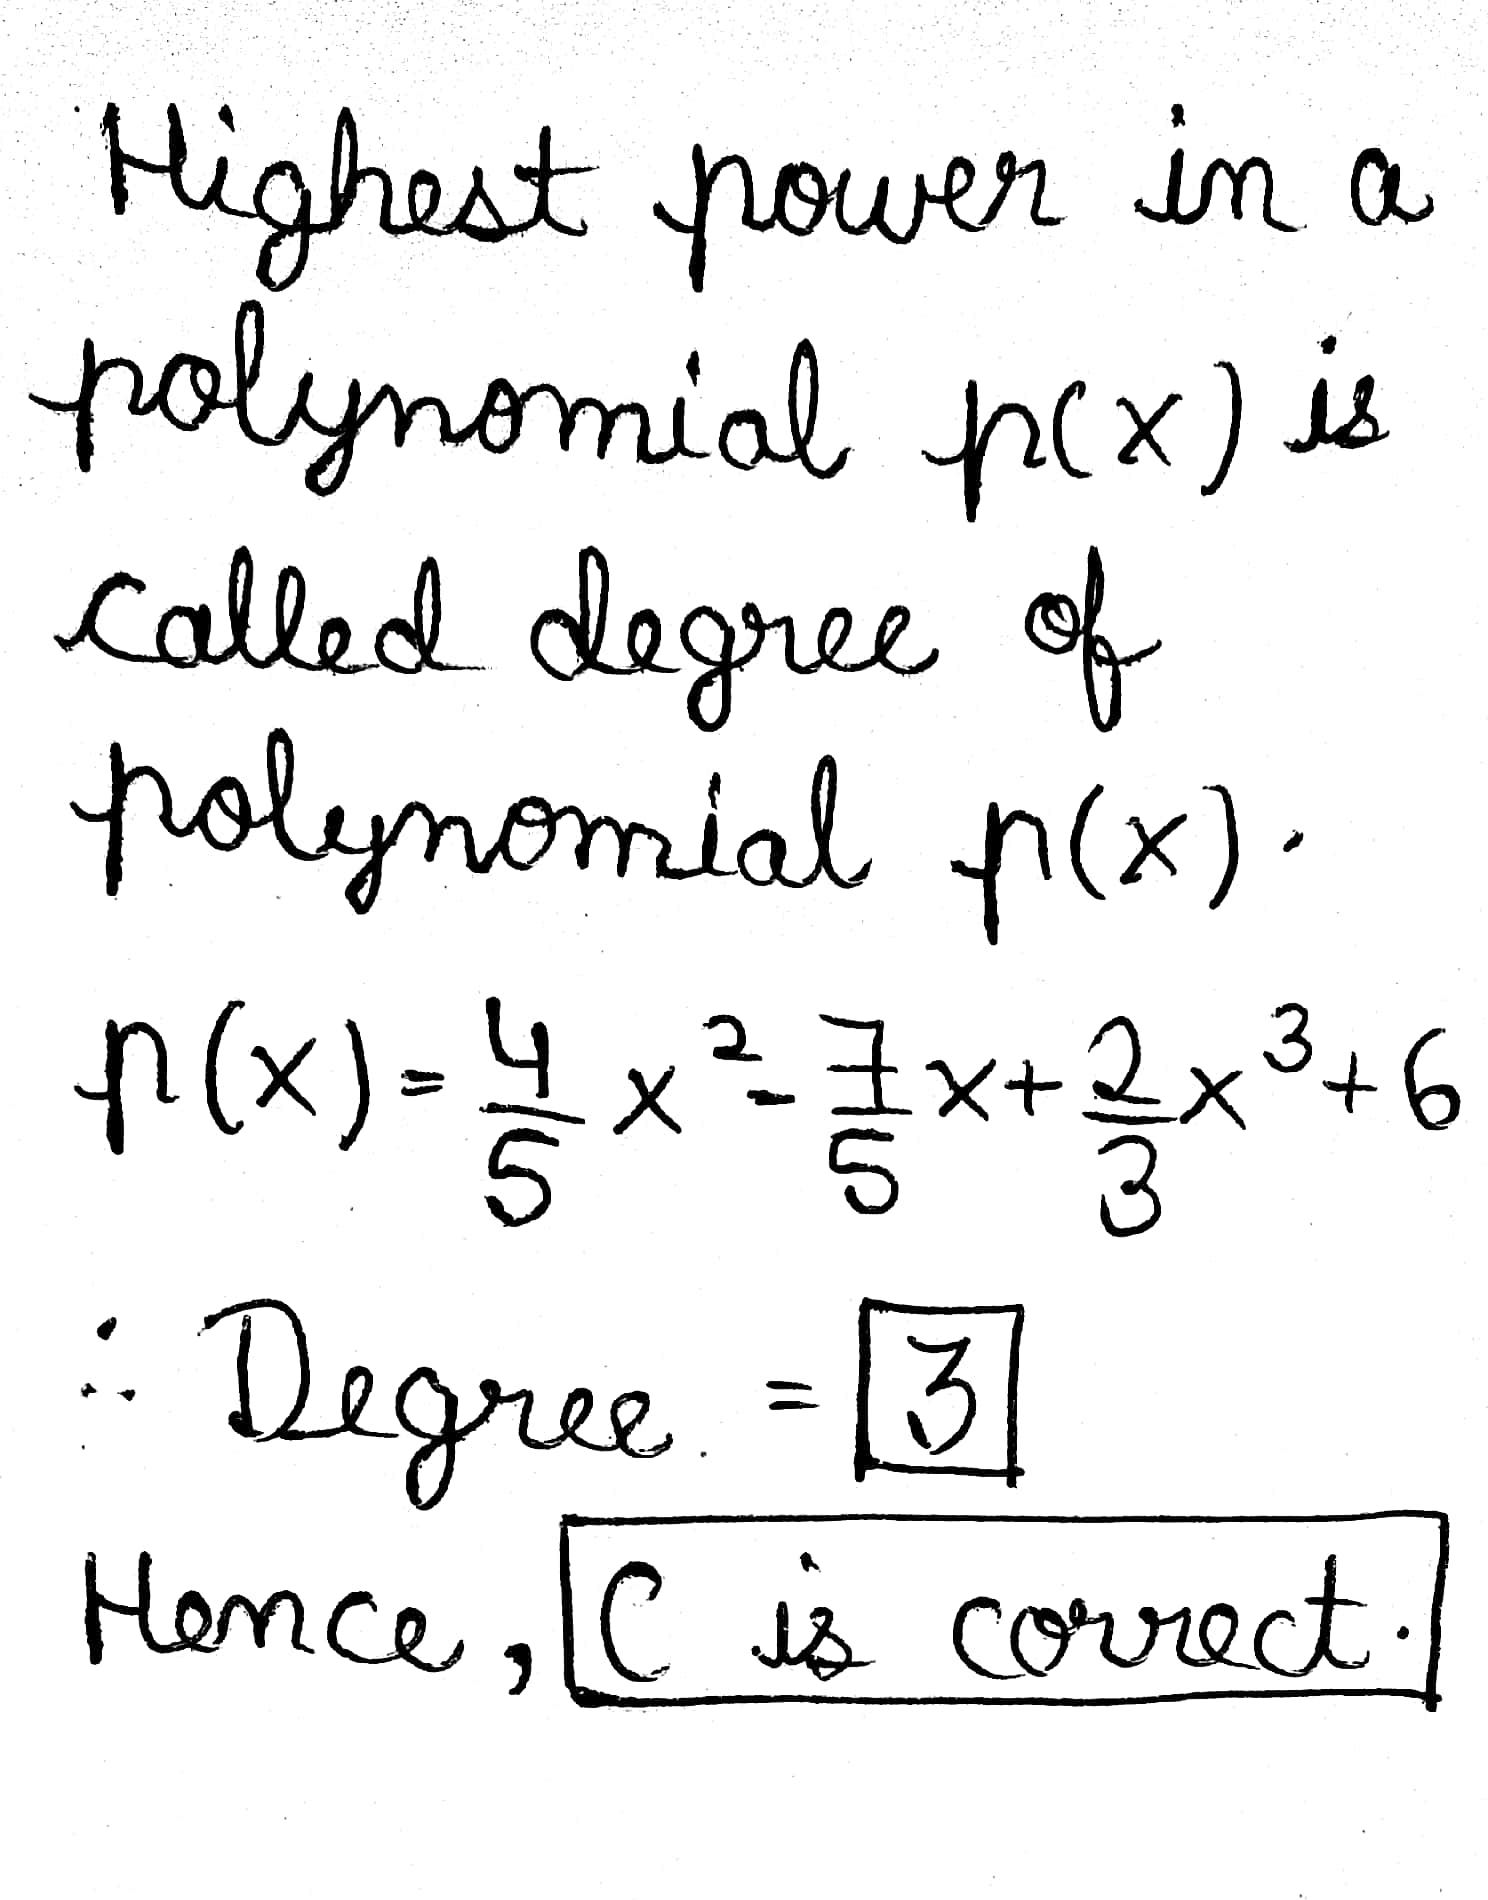 Highest power in a
polynomial p(x) is
called degree of
polynomial p(x).
p(x) = 4/5 x² - 7/5 x + 2/3 x³ + 6
∴ Degree = 3
Hence, C is correct.